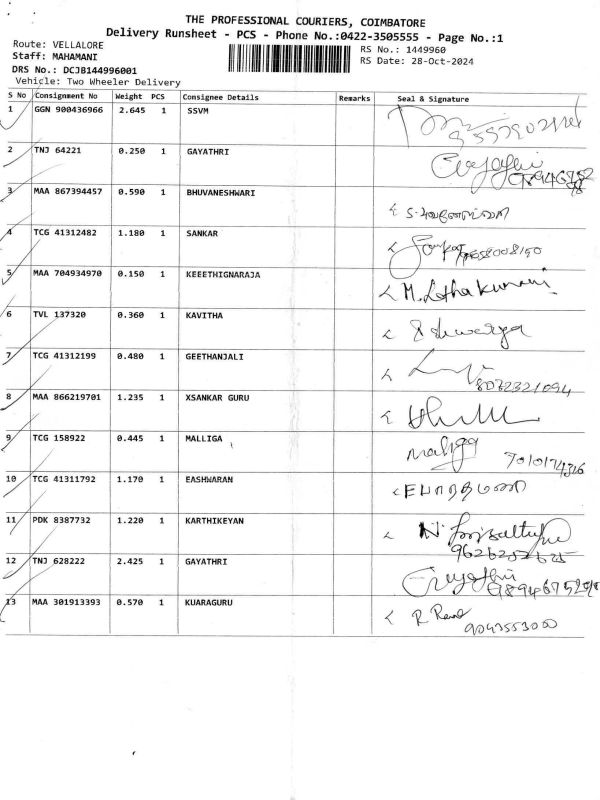 THE PROFESSIONAL COURIERS, COIMBATORE
Delivery Runsheet - PCS - Phone No.:0422-3505555 - Page No.:1
Route: VELLALORE
RS No.: 1449960
Staff: MAHAMANI
RS Date: 28-Oct-2024
DRS No.: DCJB144996001
Vehicle: Two Wheeler Delivery
S No Consignment No Weight PCS Consignee Details Remarks Seal & Signature
1 GGN 900436966 2.645 1 SSVM
2 TNJ 64221 0.250 1 GAYATHRI
3 MAA 867394457 0.590 1 BHUVANESHWARI
4 TCG 41312482 1.180 1 SANKAR
5 MAA 704934970 0.150 1 KEEETHIGNARAJA M. Lathakumari
6 TVL 137320 0.360 1 KAVITHA
7 TCG 41312199 0.480 1 GEETHANJALI 8072321094
8 MAA 866219701 1.235 1 XSANKAR GURU
9 TCG 158922 0.445 1 MALLIGA Malliga
10 TCG 41311792 1.170 1 EASHWARAN
11 PDK 8387732 1.220 1 KARTHIKEYAN 9626252625
12 TNJ 628222 2.425 1 GAYATHRI
13 MAA 301913393 0.570 1 KUARAGURU